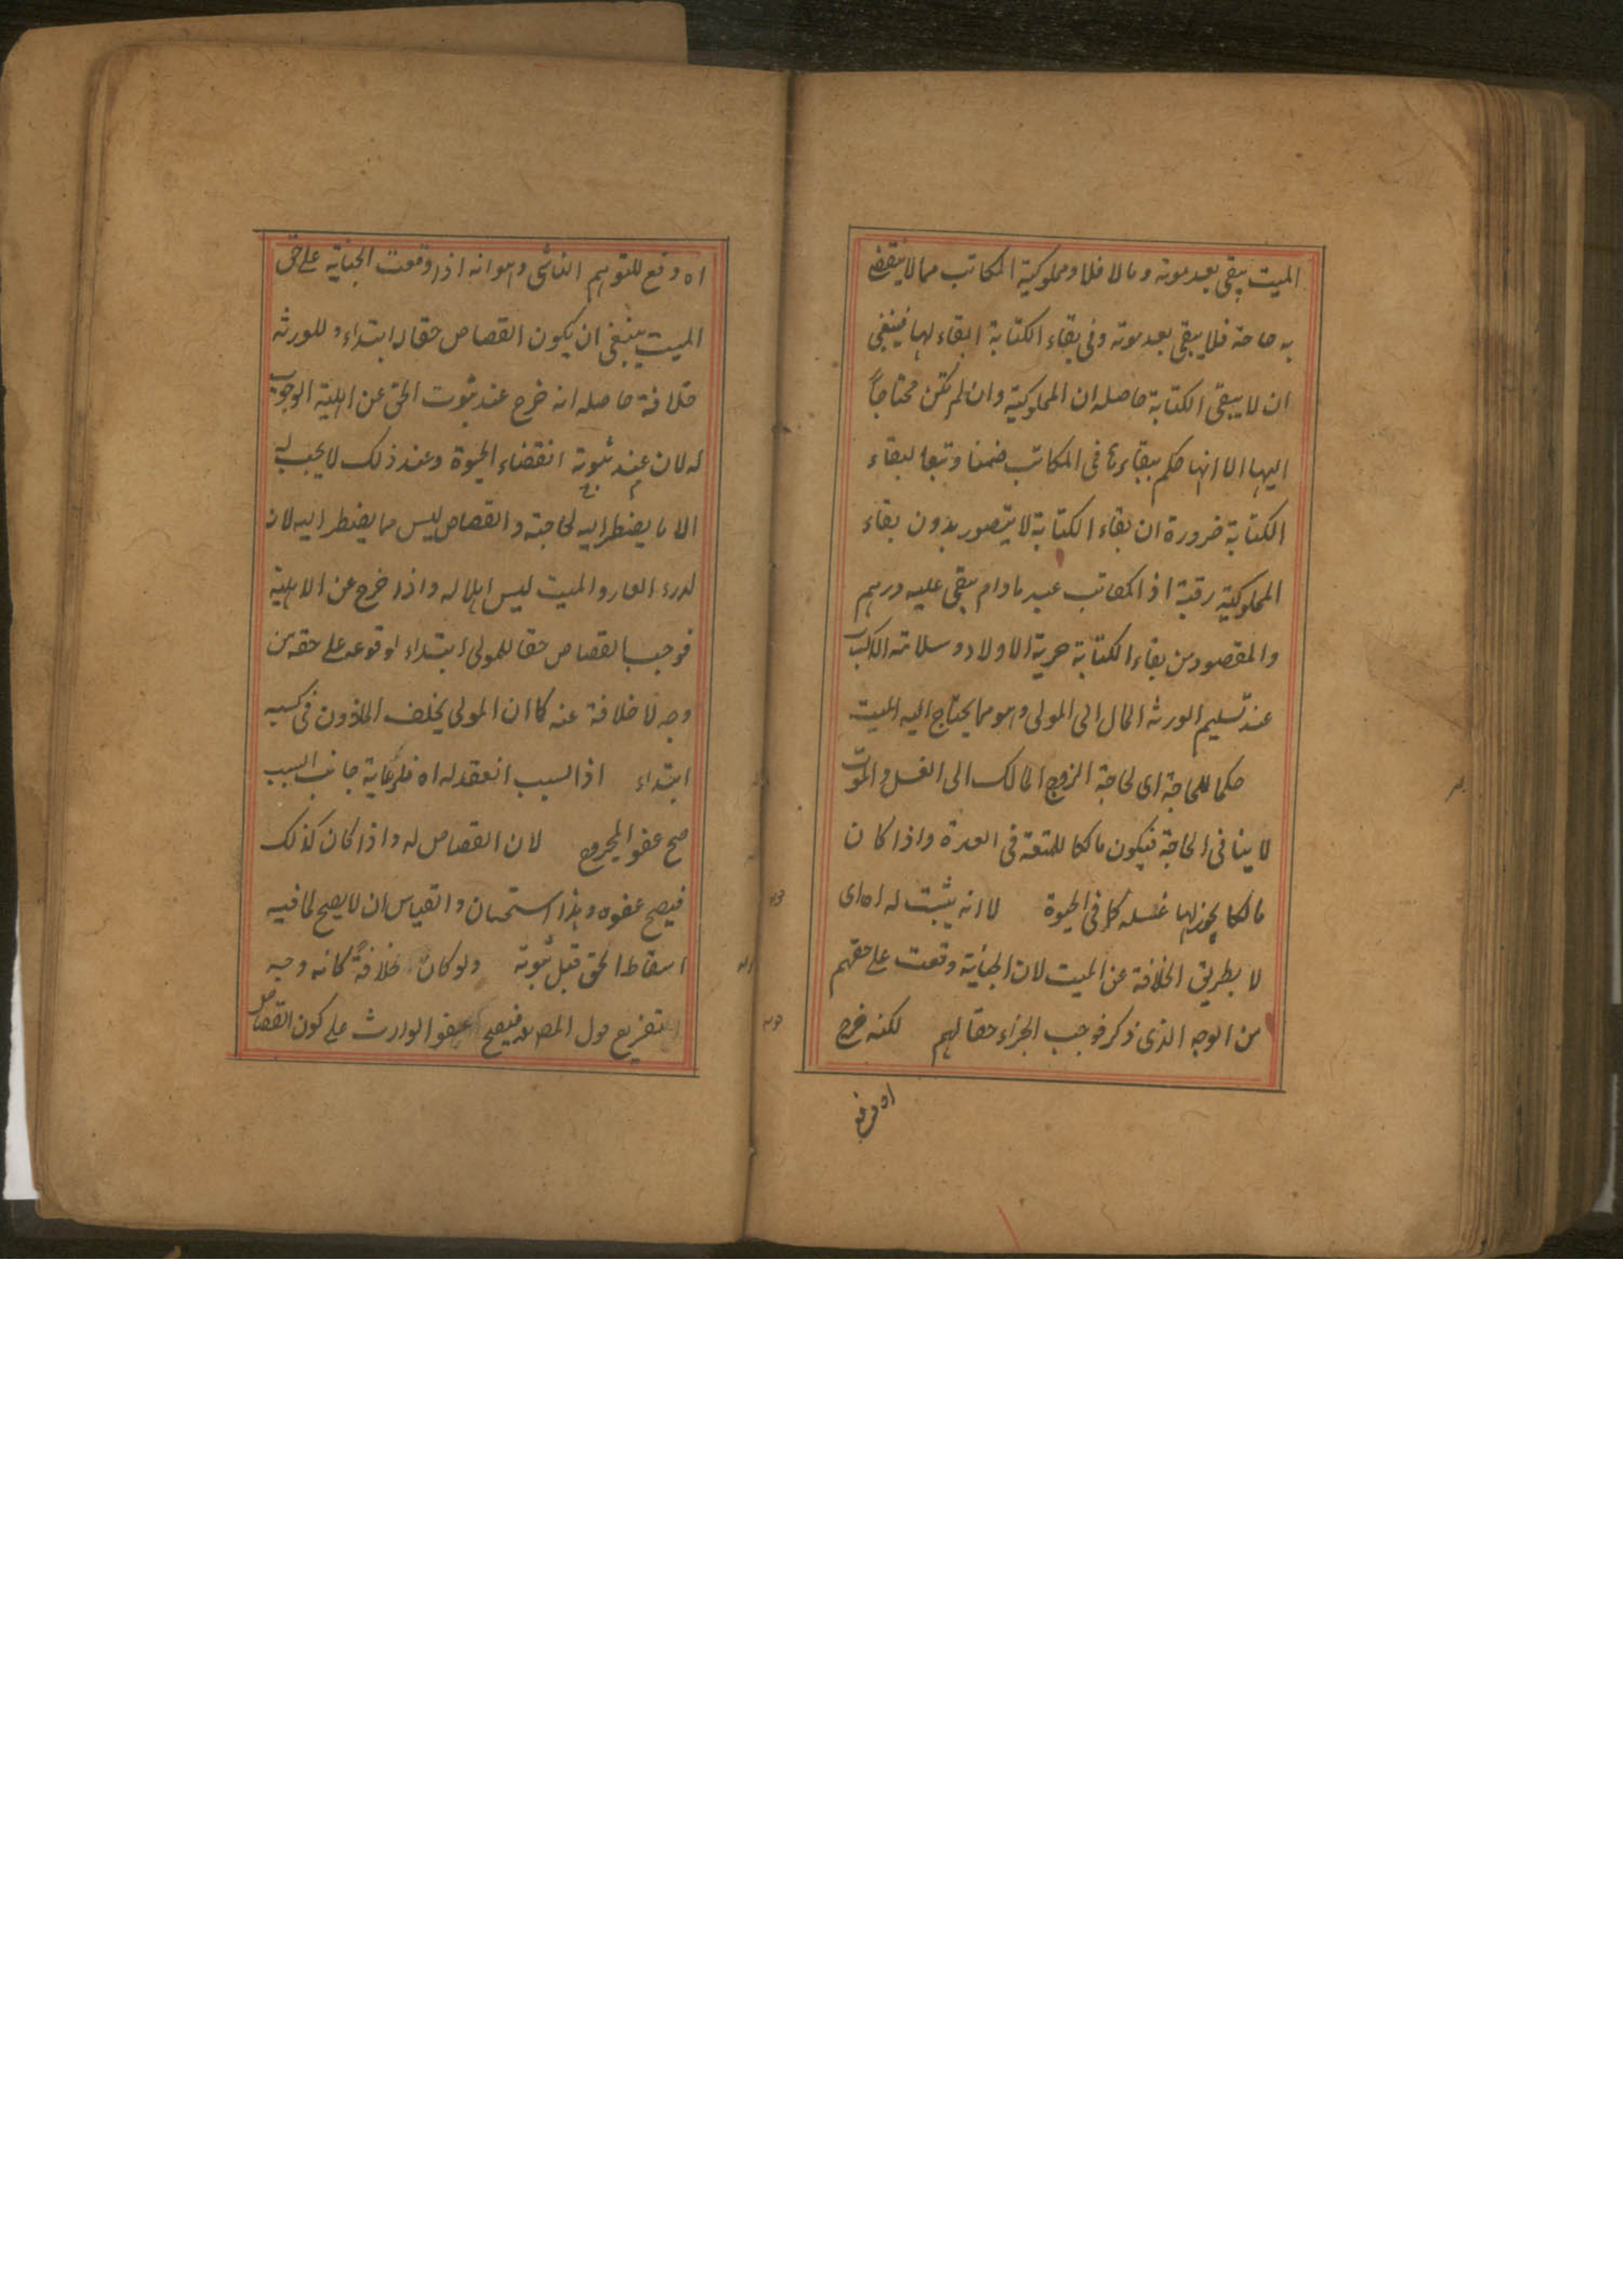 الميت يبقى بعد موته وما لا فلا ومملوكية المكاتب مما لا ينقضى
به حاجة فلا يبقى بعد موته وفى بقاء الكتابة ابقاء لها فينبغى
ان لا يبقى الكتابة حاصله ان المملوكية وان لم تكن محتاجاً
اليها الا انها حكم ببقاءها فى المكاتب ضمنا وتبعا لبقاء
الكتابة ضرورة ان بقاء الكتابة لا يتصور بدون بقاء
المملوكية رقبة اذ المكاتب عبد ما دام يبقى عليه درهم
والمقصود من بقاء الكتابة حرية الاولاد وسلامة الاكساب
عند تسليم الورثة المال الى المولى وهو مما يحتاج اليه الميت
حكما للحاجة اى لحاجة الزوج المالك الى الغسل والموت
لا ينافى الحاجة فيكون مالكا للمتعة فى العدة واذا كان
مالكا يجوز لها غسله كما فى الحيوة لا انه يثبت له اه اى
لا بطريق الخلافة عن الميت لان الجناية وقعت على حقهم
من الوجه الذى ذكر فوجب الجزاء حقا لهم لكنه خرج
اه دفع
اه دفع للتوهم الناشى وهو انه اذا وقعت الجناية على حق
الميت ينبغى ان يكون القصاص حقا له ابتداء وللورثة
خلافة حاصله انه خرج عند ثبوت الحق عن اهلية الوجوب
له لان عند ثبوته انقضاء الحيوة وعند ذلك لا يجب له
الا ما يضطر اليه لحاجته والقصاص ليس مما يضطر اليه لان
لدرء العار والميت ليس اهلا له واذا خرج عن الاهلية
فوجب القصاص حقا للمولى ابتداء لوقوعه على حقه من
وجه لا خلافة عنه كما ان المولى يخلف الماذون فى كسبه
ابتداء اذ السبب انعقد له اه فلرعاية جانب السبب
صح عفو المجروح لان القصاص له واذا كان كذلك
فيصح عفوه وهذا استحسان والقياس ان لا يصح لما فيه
اسقاط الحق قبل ثبوته ولو كان خلافة كانه وجه
التفريع قول المصـ فيصح عفو الوارث على كون القصاص